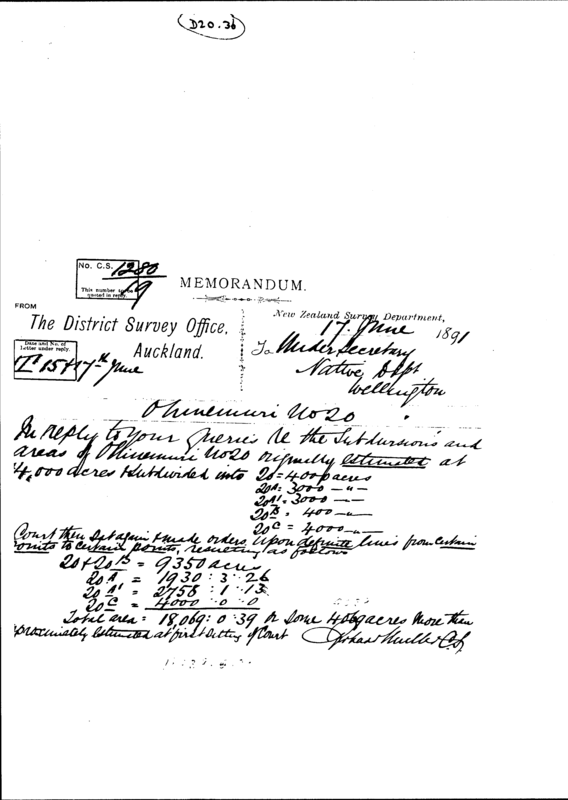 D20.36
No. C.S. 1280
This number to be
quoted in reply. 19
MEMORANDUM.
FROM
The District Survey Office,
Auckland.
Date and No. of
Letter under reply.
15 & 17th June
New Zealand Survey Department,
17. June 1891
To Under Secretary
Native Dept
Wellington
Ohinemuri No 20
In reply to your queries re the Subdivisions and
areas of Ohinemuri No 20 originally estimated at
14,000 acres & subdivided into 20 = 4000 acres
20A = 3000 —"—
20A1 = 3000 —"—
20B = 400 —"—
20C = 4000 —"—
Court then sat again & made orders upon definite lines from certain
points to certain points, resulting as follows
20 & 20B = 9350 acres
20A = 1930 : 3 : 26
20A1 = 2758 : 1 : 13
20C = 4000 : 0 : 0
Total area = 18,069 : 0 : 39 or some 4069 acres more then
approximately estimated at first sitting of Court